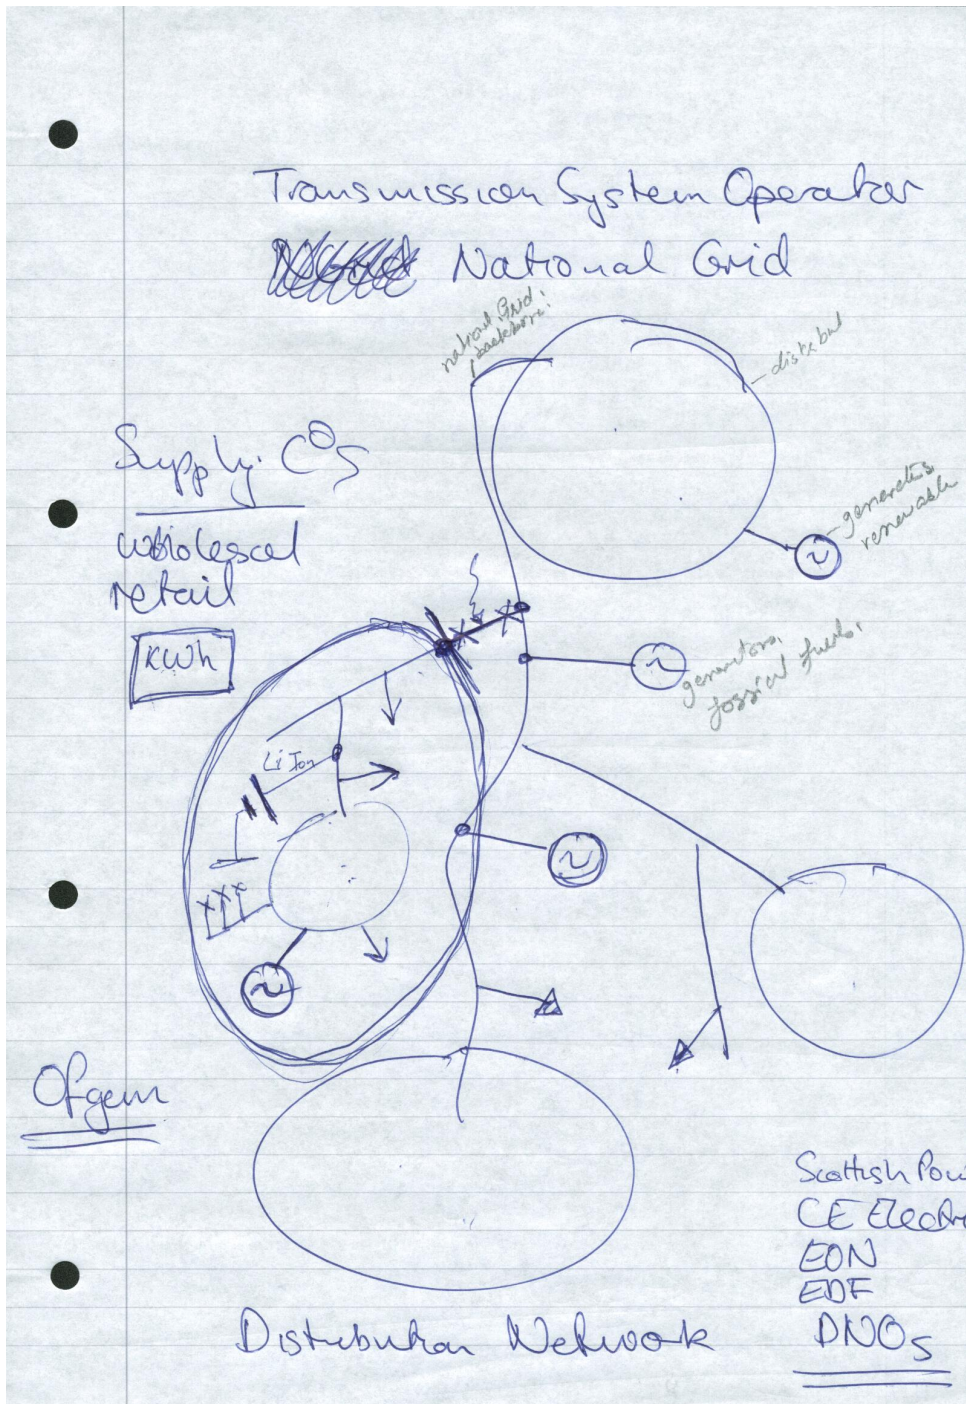 Transmission System Operator
National Grid
national Grid.
backbone.
distribut
Supply. Cos
wholescal
retail
KWh
generators
renewable
generators,
fossial fuels.
Li Ion
Ofgem
Scottish Pow
CE Electri
EON
EDF
DNOs
Distribution Network